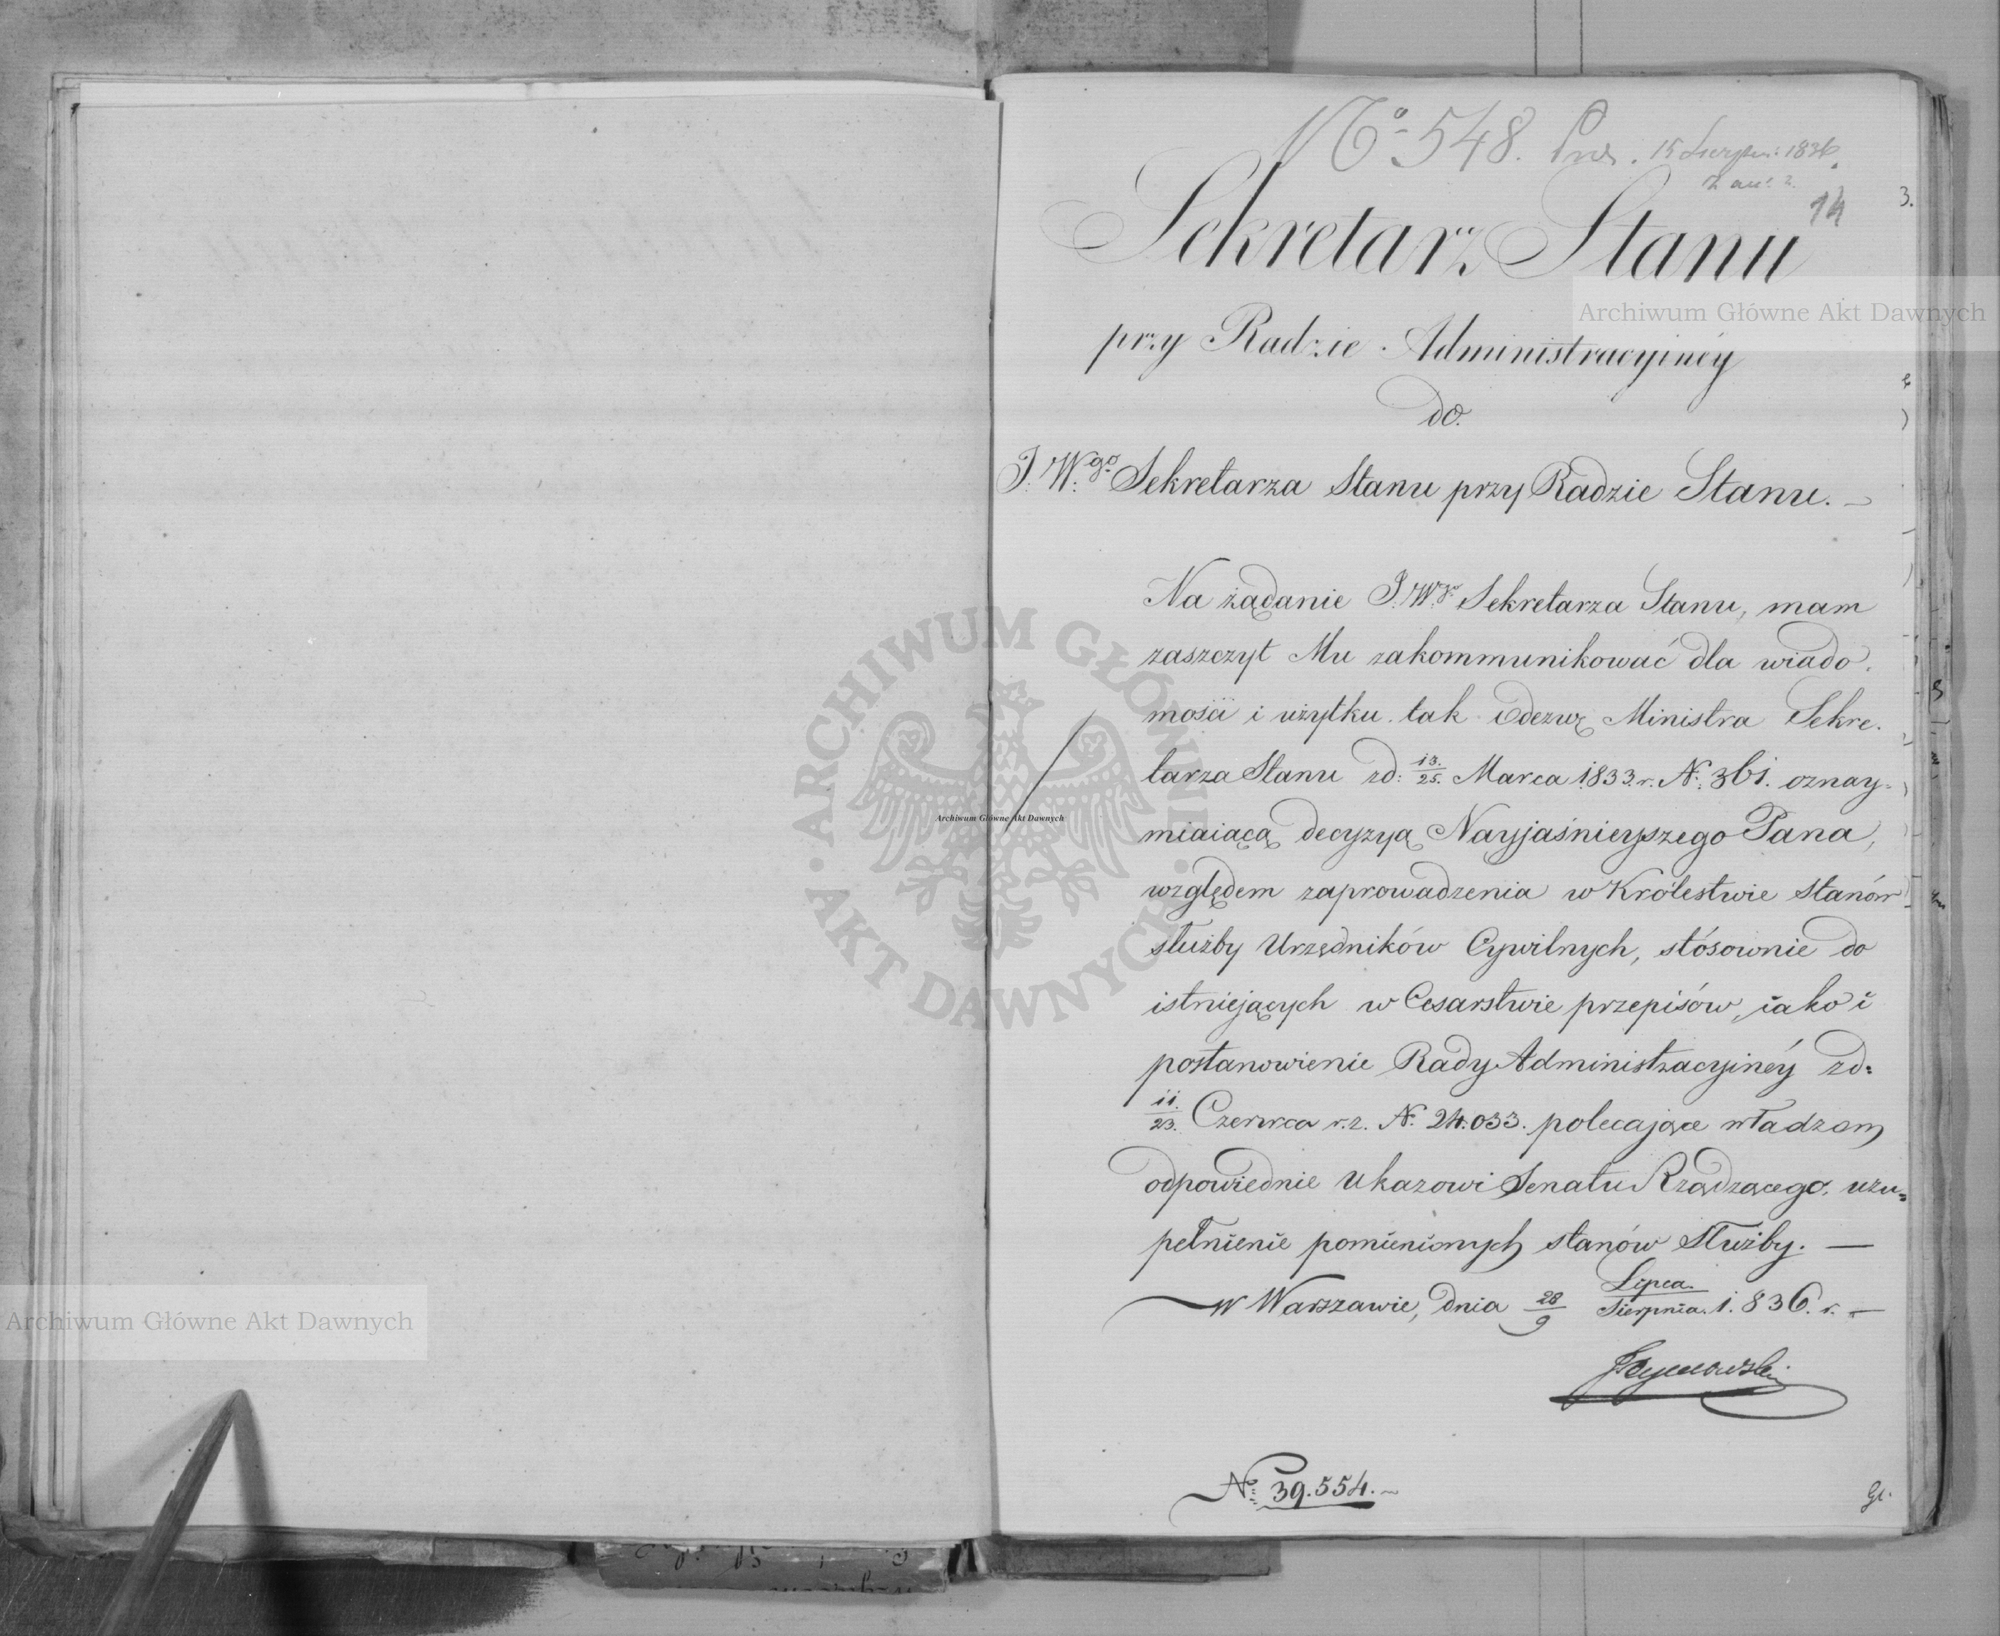 No 548. Prs. 15 Sierpn: 1836.
Z an: 2.
14
3.
Sekretarz Stanu
przy Radzie Administracyinéy
do.
J. W.go Sekretarza Stanu przy Radzie Stanu. —
Na żądanie J. W.go Sekretarza Stanu, mam
zaszczyt Mu zakommunikować dla wiado.
mości i użytku tak odezwę Ministra Sekre.
tarza Stanu zd: 13./25. Marca 1833. r. N: 361. oznay-
miaiącą decyzyą Nayjaśnieyszego Pana,
względem zaprowadzenia w Królestwie Stanów
służby Urzędników Cywilnych, stósownie do
istniejących w Cesarstwie przepisów, iako i
postanowienie Rady Administracyinéy zd:
11./23. Czerwca r. z. N: 24.033. polecające władzom
odpowiednie Ukazowi Senatu Rządzącego, uzu=
pełnienie pomienionych stanów Służby. —
W Warszawie, dnia 28/9 Lipca/Sierpnia 1.836. r. —
JTymowski
N: 39.554. —
Gl.
Archiwum Główne Akt Dawnych
Archiwum Główne Akt Dawnych
Archiwum Główne Akt Dawnych
· ARCHIWUM GŁÓWNE · AKT DAWNYCH